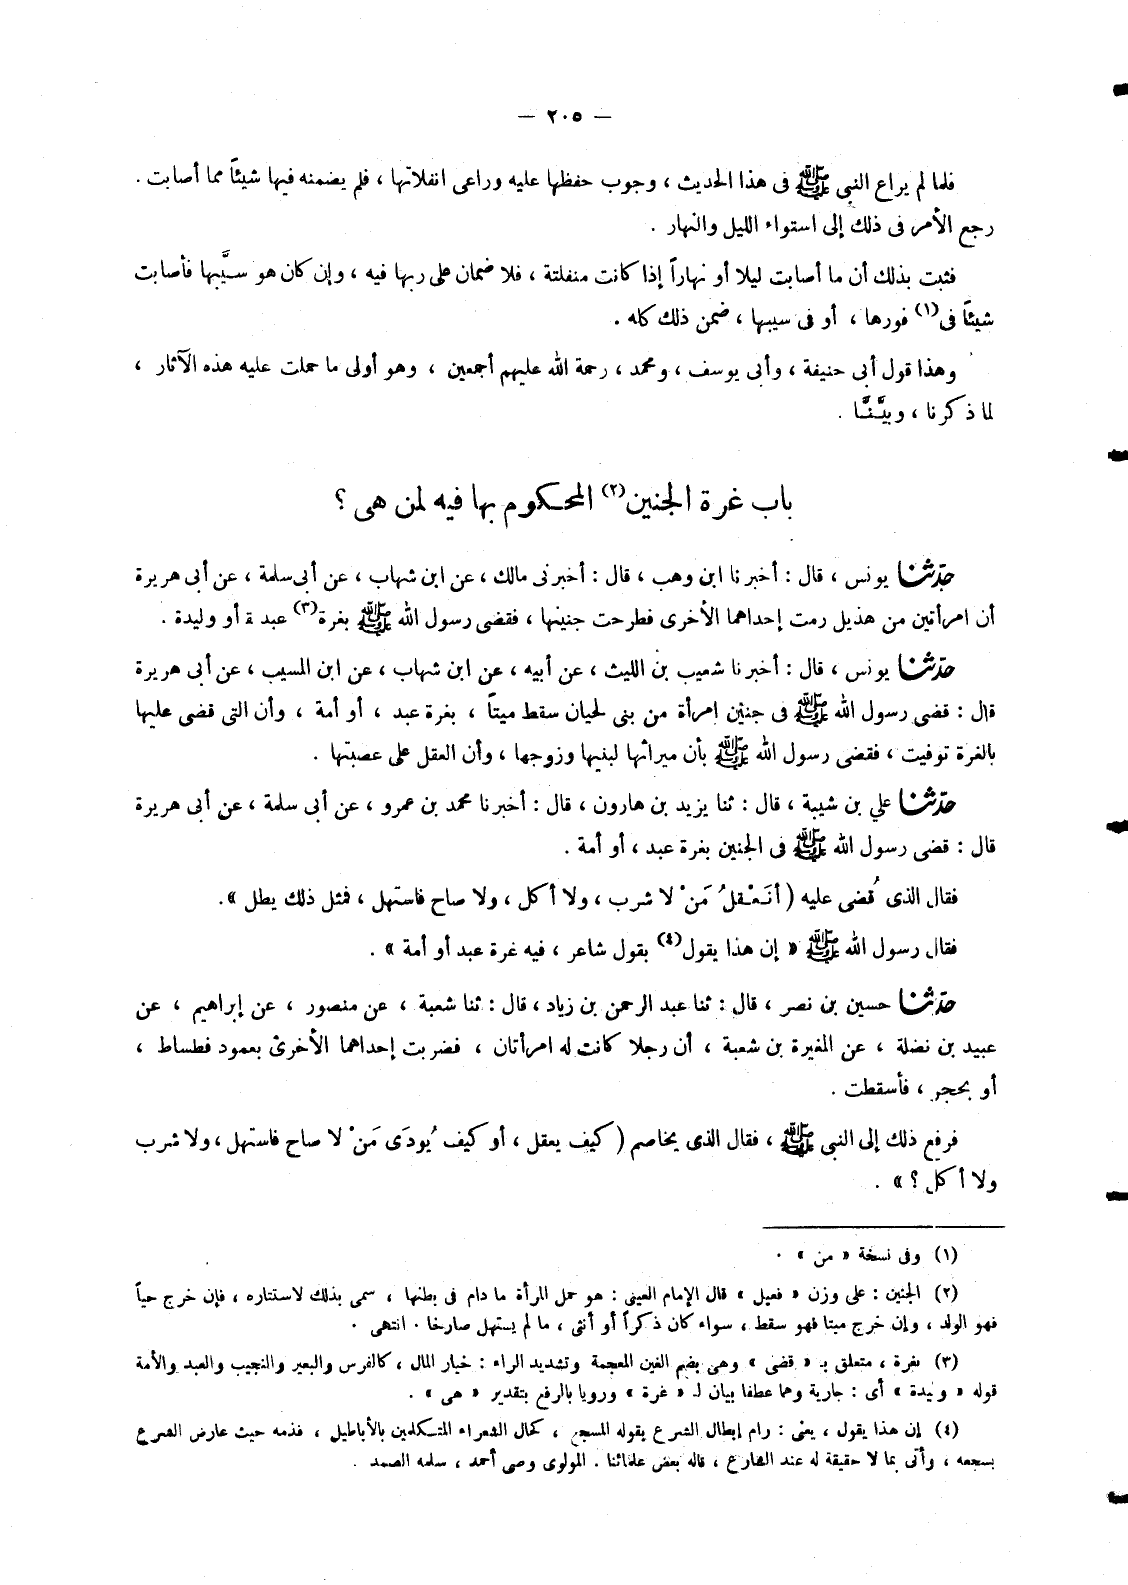 — ٢٠٥ —
فلما لم يراع النبى ﷺ فى هذا الحديث ، وجوب حفظها عليه وراعى انفلاتها ، فلم يضمنه فيها شيئاً مما أصابت .
رجع الأمر فى ذلك إلى استواء الليل والنهار .
فثبت بذلك أن ما أصابت ليلا أو نهاراً إذا كانت منفلتة ، فلا ضمان على ربها فيه ، وإن كان هو سيَّبها فأصابت
شيئاً فى(١) فورها ، أو فى سيبها ، ضمن ذلك كله .
وهذا قول أبى حنيفة ، وأبى يوسف ، ومحمد ، رحمة الله عليهم أجمعين ، وهو أولى ما حملت عليه هذه الآثار ،
لما ذكرنا ، وبيَّنَّا .
باب غرة الجنين(٢) المحكوم بها فيه لمن هى ؟
حدّثنا يونس ، قال : أخبرنا ابن وهب ، قال : أخبرنى مالك ، عن ابن شهاب ، عن أبى سلمة ، عن أبى هريرة
أن امرأتين من هذيل رمت إحداهما الأخرى فطرحت جنينها ، فقضى رسول الله ﷺ بغرة(٣) عبد ة أو وليدة .
حدّثنا يونس ، قال : أخبرنا شعيب بن الليث ، عن أبيه ، عن ابن شهاب ، عن ابن المسيب ، عن أبى هريرة
قال : قضى رسول الله ﷺ فى جنين إمرأة من بنى لحيان سقط ميتاً ، بغرة عبد ، أو أمة ، وأن التى قضى عليها
بالغرة توفيت ، فقضى رسول الله ﷺ بأن ميراثها لبنيها وزوجها ، وأن العقل على عصبتها .
حدّثنا علي بن شيبة ، قال : ثنا يزيد بن هارون ، قال : أخبرنا محمد بن عمرو ، عن أبى سلمة ، عن أبى هريرة
قال : قضى رسول الله ﷺ فى الجنين بغرة عبد ، أو أمة .
فقال الذى قُضى عليه ( أنَعْقلُ مَنْ لا شرب ، ولا أكل ، ولا صاح فاستهل ، فمثل ذلك يطل » .
فقال رسول الله ﷺ « إن هذا يقول(٤) بقول شاعر ، فيه غرة عبد أو أمة » .
حدّثنا حسين بن نصر ، قال : ثنا عبد الرحمن بن زياد ، قال : ثنا شعبة ، عن منصور ، عن إبراهيم ، عن
عبيد بن نضلة ، عن المغيرة بن شعبة ، أن رجلا كانت له امرأتان ، فضربت إحداهما الأخرى بعمود فطساط ،
أو بحجر ، فأسقطت .
فرفع ذلك إلى النبى ﷺ ، فقال الذى يخاصم ( كيف يعقل ، أو كيف يُودَى مَنْ لا صاح فاستهل ، ولا شرب
ولا أكل ؟ » .
(١) وفى نسخة « من » .
(٢) الجنين : على وزن « فعيل » قال الإمام العينى : هو حمل المرأة ما دام فى بطنها ، سمى بذلك لاستتاره ، فإن خرج حياً
فهو الولد ، وإن خرج ميتا فهو سقط ، سواء كان ذكراً أو أنثى ، ما لم يستهل صارخا . انتهى .
(٣) بغرة ، متعلق بـ « قضى » وهى بضم الغين المعجمة وتشديد الراء : خيار المال ، كالفرس والبعير والنجيب والعبد والأمة
قوله « وليدة » أى : جارية وهما عطفا بيان لـ « غرة » ورويا بالرفع بتقدير « هى » .
(٤) إن هذا يقول ، يعنى : رام إبطال الشرع بقوله المسجع ، كحال الشعراء المتكلمين بالأباطيل ، فذمه حيث عارض الشرع
بسجعه ، وأتى بما لا حقيقة له عند الشارع ، قاله بعض علمائنا . المولوى وصى أحمد ، سلمه الصمد .